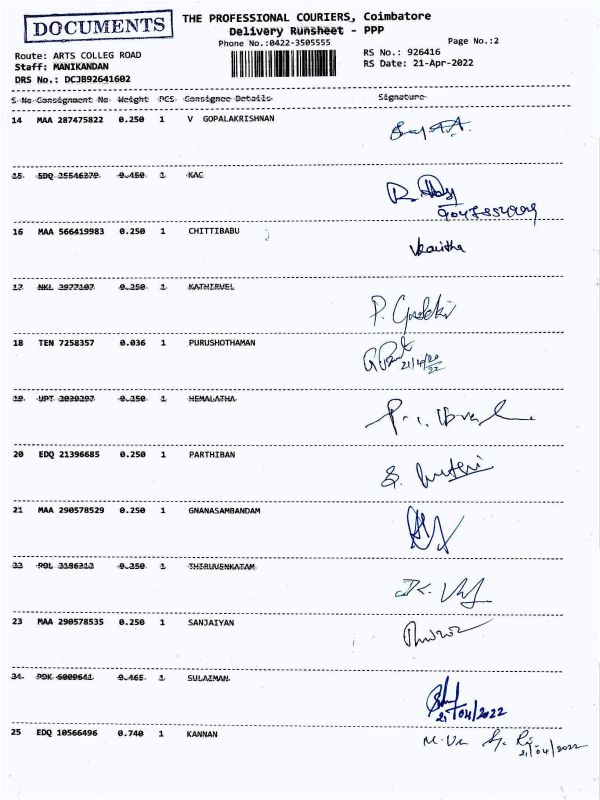 DOCUMENTS
THE PROFESSIONAL COURIERS, Coimbatore
Delivery Runsheet - PPP
Phone No.:0422-3505555
Page No.:2
Route: ARTS COLLEG ROAD
Staff: MANIKANDAN
DRS No.: DCJB92641602
RS No.: 926416
RS Date: 21-Apr-2022
S No Consignment No Weight PCS Consignee Details Signature
14 MAA 287475822 0.250 1 V GOPALAKRISHNAN
15 EDQ 25546379 0.450 1 KAC
16 MAA 566419983 0.250 1 CHITTIBABU
17 NKL 2977107 0.250 1 KATHIRVEL
18 TEN 7258357 0.036 1 PURUSHOTHAMAN
21/4/2022
19 UPT 2039297 0.250 1 HEMALATHA
20 EDQ 21396685 0.250 1 PARTHIBAN
21 MAA 290578529 0.250 1 GNANASAMBANDAM
22 POL 2186312 0.250 1 THIRUVENKATAM
23 MAA 290578535 0.250 1 SANJAIYAN
24 PDK 6009641 0.465 1 SULAIMAN
21/04/2022
25 EDQ 10566496 0.740 1 KANNAN
21/04/2022